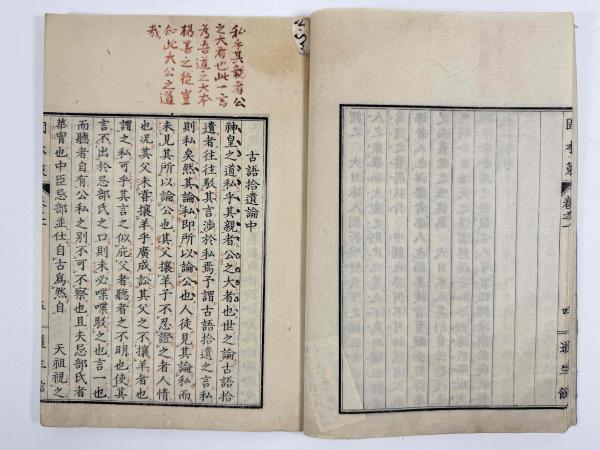 私乎其親者公
之大者也此一言
為吾道之大本
楊墨之徒豈
知此大公之道
哉
古語拾遺論中
神皇之道私乎其親者公之大者也世之論古語拾
遺者往往駁其言渉於私焉予謂古語拾遺之言私
則私矣然其論私即所以論公也人徒見其論私而
未見其所以論公也其父攘羊子不忍證之者人情
也况其父未嘗攘羊乎廣成訟其父之不攘羊者也
謂之私可乎其言之似庇父者聽者之不明也使其
言不出於忌部氏之口則未必喋喋駁之也言一也
而聽者自有公私之別不可不察也且夫忌部氏者
華冑也中臣忌部並仕自古為然自 天祖視之
卷之一
四
道生館